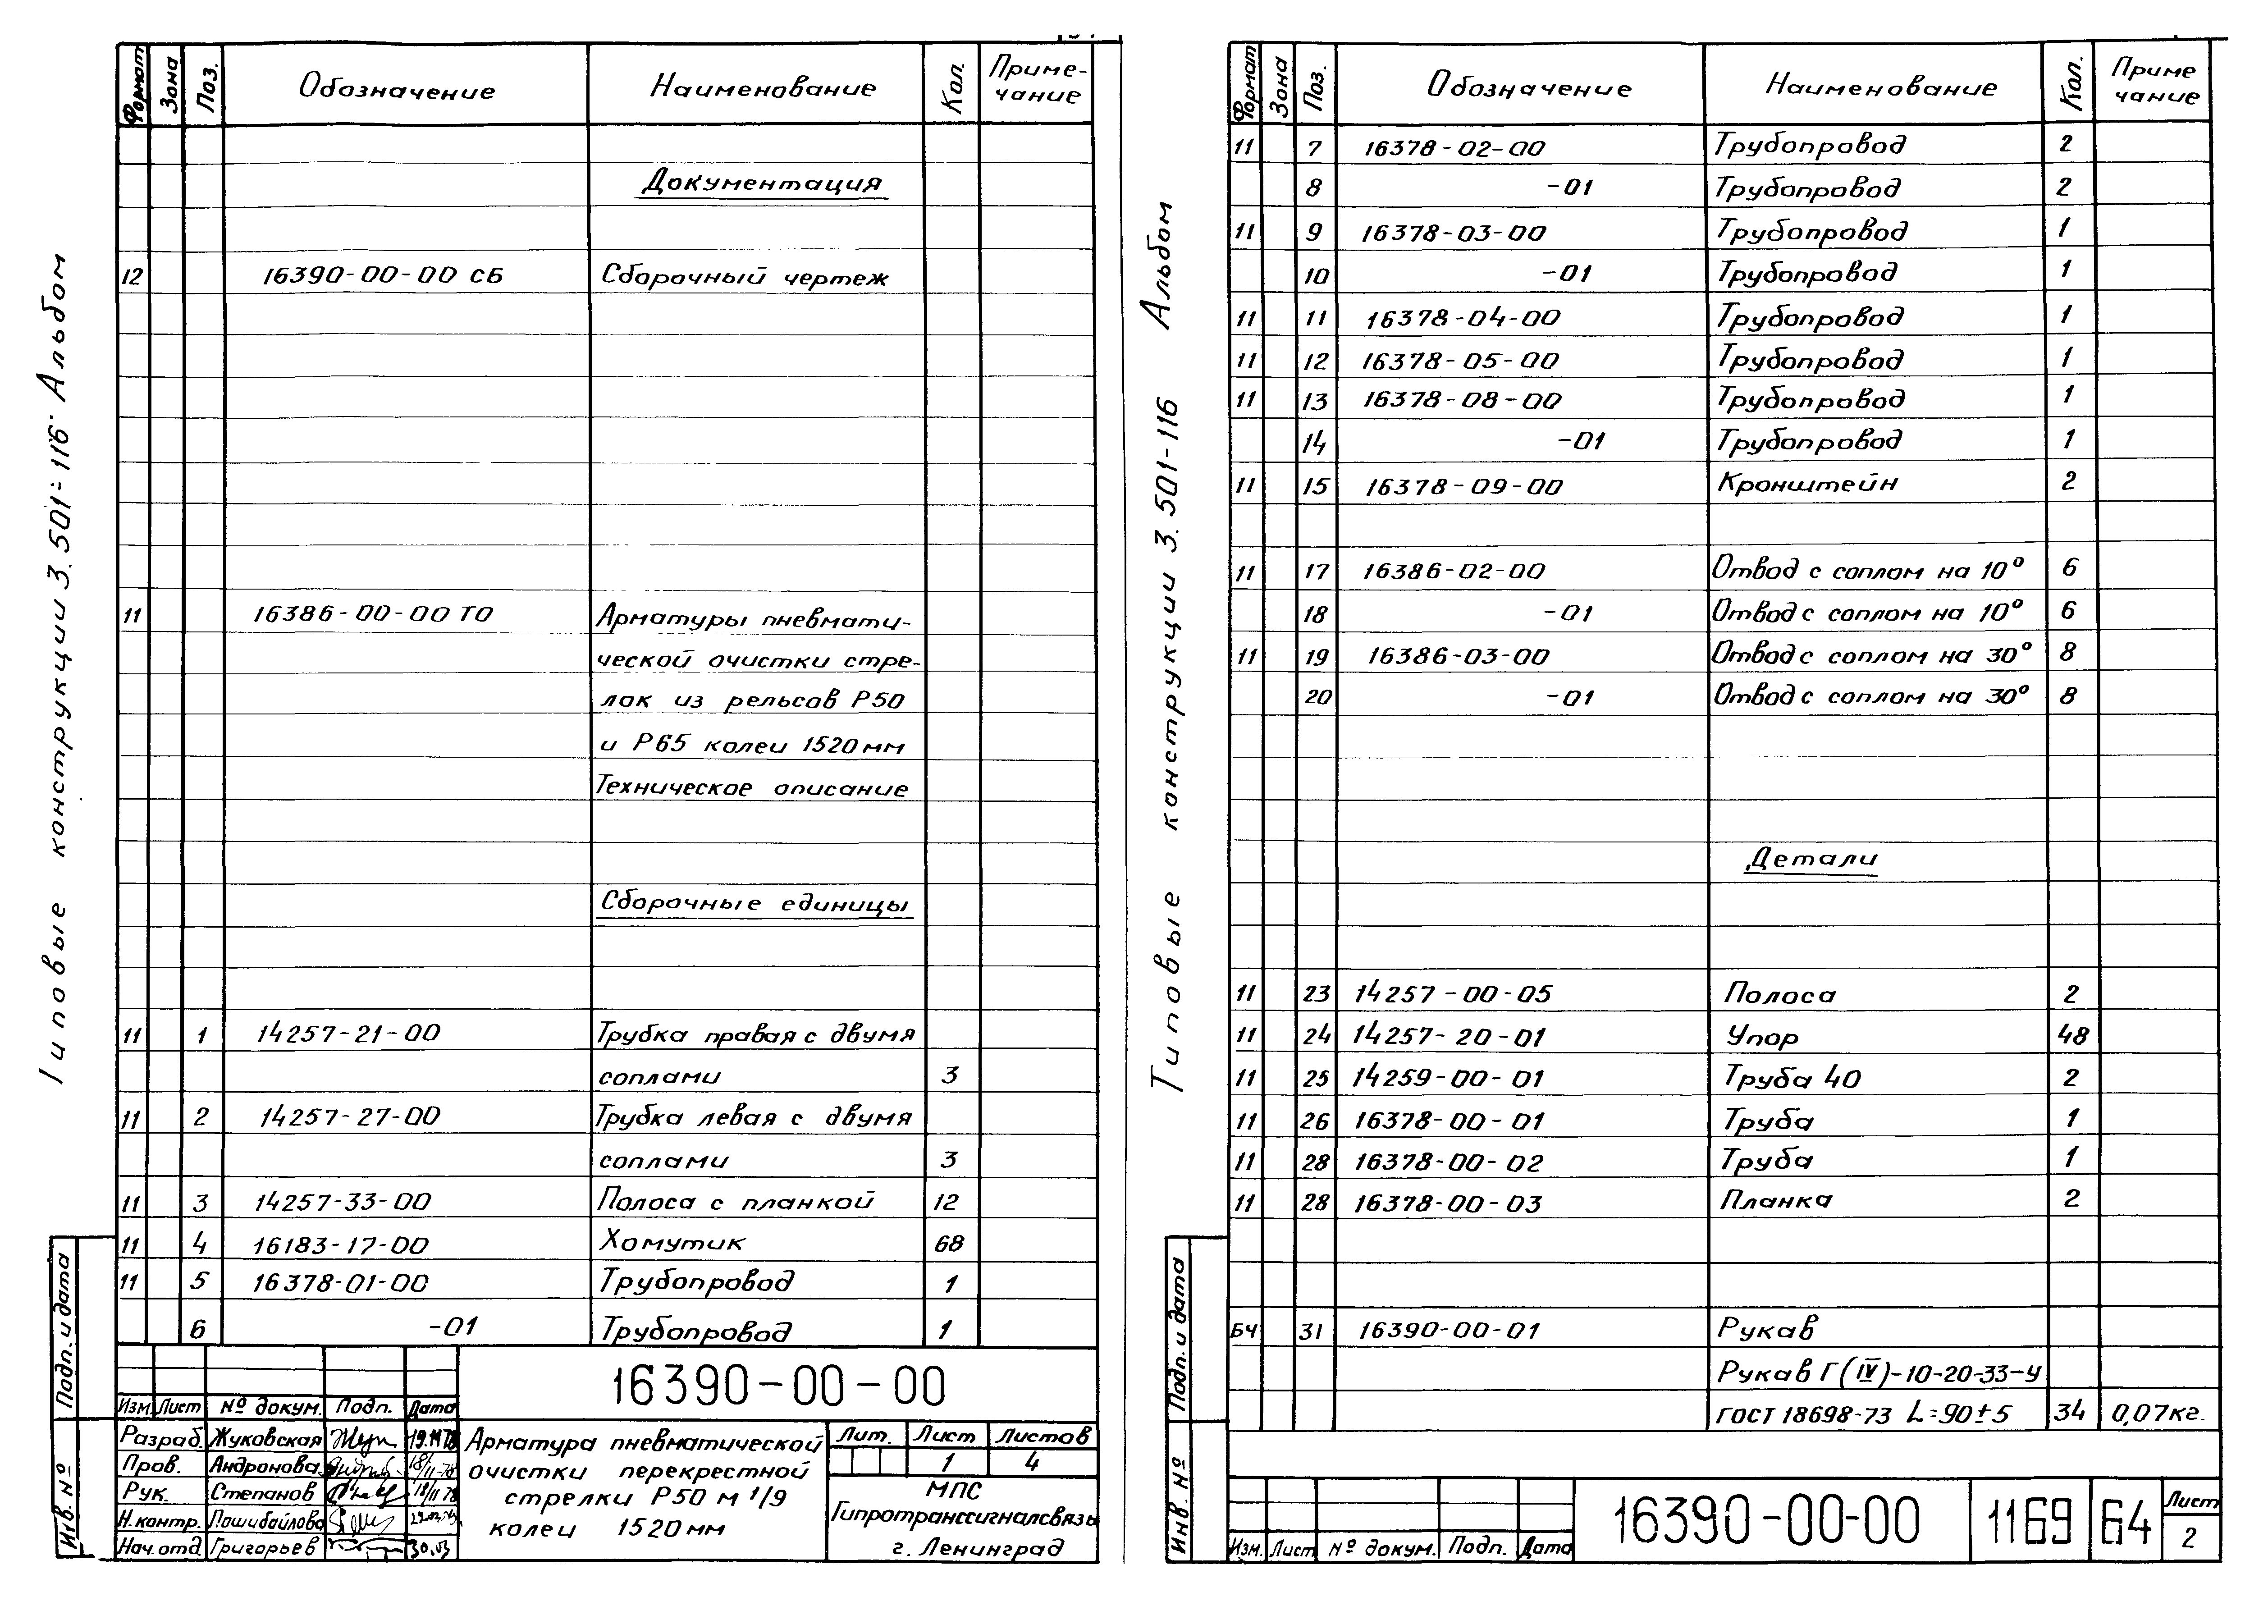 Типовые конструкции 3.501-116 Альбом
Формат Зона Поз. Обозначение Наименование Кол. Приме-
чание
Документация
12 16390-00-00 СБ Сборочный чертеж
11 16386-00-00 ТО Арматуры пневмати-
ческой очистки стре-
лок из рельсов Р50
и Р65 колеи 1520 мм
Техническое описание
Сборочные единицы
11 1 14257-21-00 Трубка правая с двумя
соплами 3
11 2 14257-27-00 Трубка левая с двумя
соплами 3
11 3 14257-33-00 Полоса с планкой 12
11 4 16183-17-00 Хомутик 68
11 5 16378-01-00 Трубопровод 1
6 -01 Трубопровод 1
Подп. и дата
Инв. №
16390-00-00
Изм. Лист № докум. Подп. Дата
Разраб. Жуковская
Пров. Андронова
Рук. Степанов
Н.контр. Пошибайлова
Нач.отд. Григорьев 30.03
Арматура пневматической
очистки перекрестной
стрелки Р50 м 1/9
колеи 1520 мм
Лит. Лист Листов
1 4
МПС
Гипротранссигналсвязь
г. Ленинград
Типовые конструкции 3.501-116 Альбом
Формат Зона Поз. Обозначение Наименование Кол. Приме
чание
11 7 16378-02-00 Трубопровод 2
8 -01 Трубопровод 2
11 9 16378-03-00 Трубопровод 1
10 -01 Трубопровод 1
11 11 16378-04-00 Трубопровод 1
11 12 16378-05-00 Трубопровод 1
11 13 16378-08-00 Трубопровод 1
14 -01 Трубопровод 1
11 15 16378-09-00 Кронштейн 2
11 17 16386-02-00 Отвод с соплом на 10° 6
18 -01 Отвод с соплом на 10° 6
11 19 16386-03-00 Отвод с соплом на 30° 8
20 -01 Отвод с соплом на 30° 8
Детали
11 23 14257-00-05 Полоса 2
11 24 14257-20-01 Упор 48
11 25 14259-00-01 Труба 40 2
11 26 16378-00-01 Труба 1
11 28 16378-00-02 Труба 1
11 28 16378-00-03 Планка 2
БЧ 31 16390-00-01 Рукав
Рукав Г(IV)-10-20-33-У
ГОСТ 18698-73 L=90±5 34 0,07кг.
Подп. и дата
Инв. №
Изм. Лист № докум. Подп. Дата
16390-00-00 1169 64 Лист
2